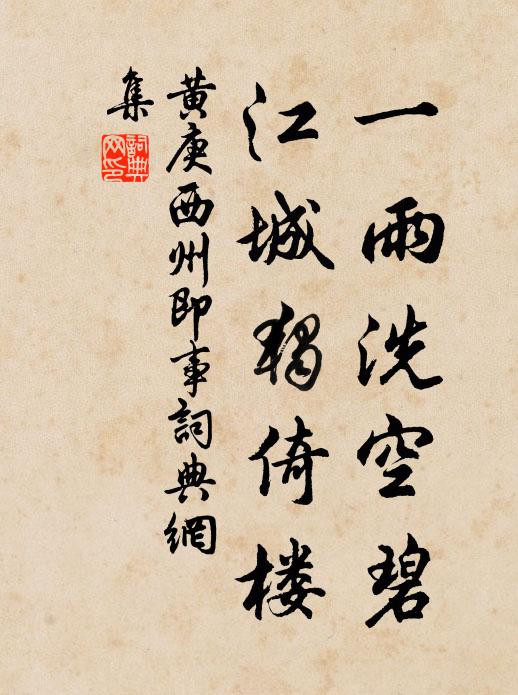 一雨洗空碧
江城独倚楼
黄庚西州即事詞典網
集
詞典网印